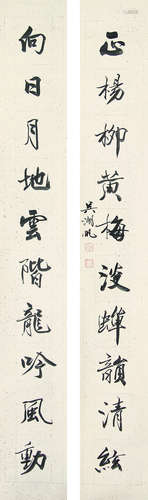 正楊柳黃梅淡蟬韻清絃
向日月地雲階龍吟風動
吳湖帆